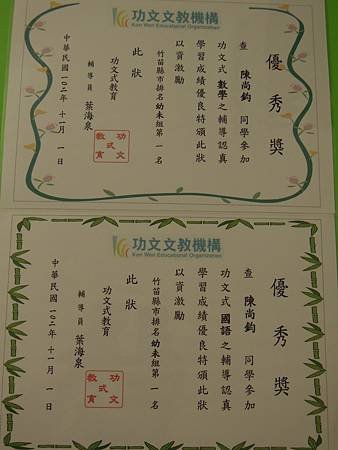 功文文教機構
Kun Wen Educational Organization
優秀獎
查 陳尚鈞 同學參加
功文式數學之輔導認真
學習成績優良特頒此狀
以資激勵
竹苗縣市排名幼未組第一名
此狀
功文式教育
輔導員 葉海泉
功文式教育
中華民國一○二年十一月一日
功文文教機構
Kun Wen Educational Organization
優秀獎
查 陳尚鈞 同學參加
功文式國語之輔導認真
學習成績優良特頒此狀
以資激勵
竹苗縣市排名幼未組第一名
此狀
功文式教育
輔導員 葉海泉
功文式教育
中華民國一○二年十一月一日